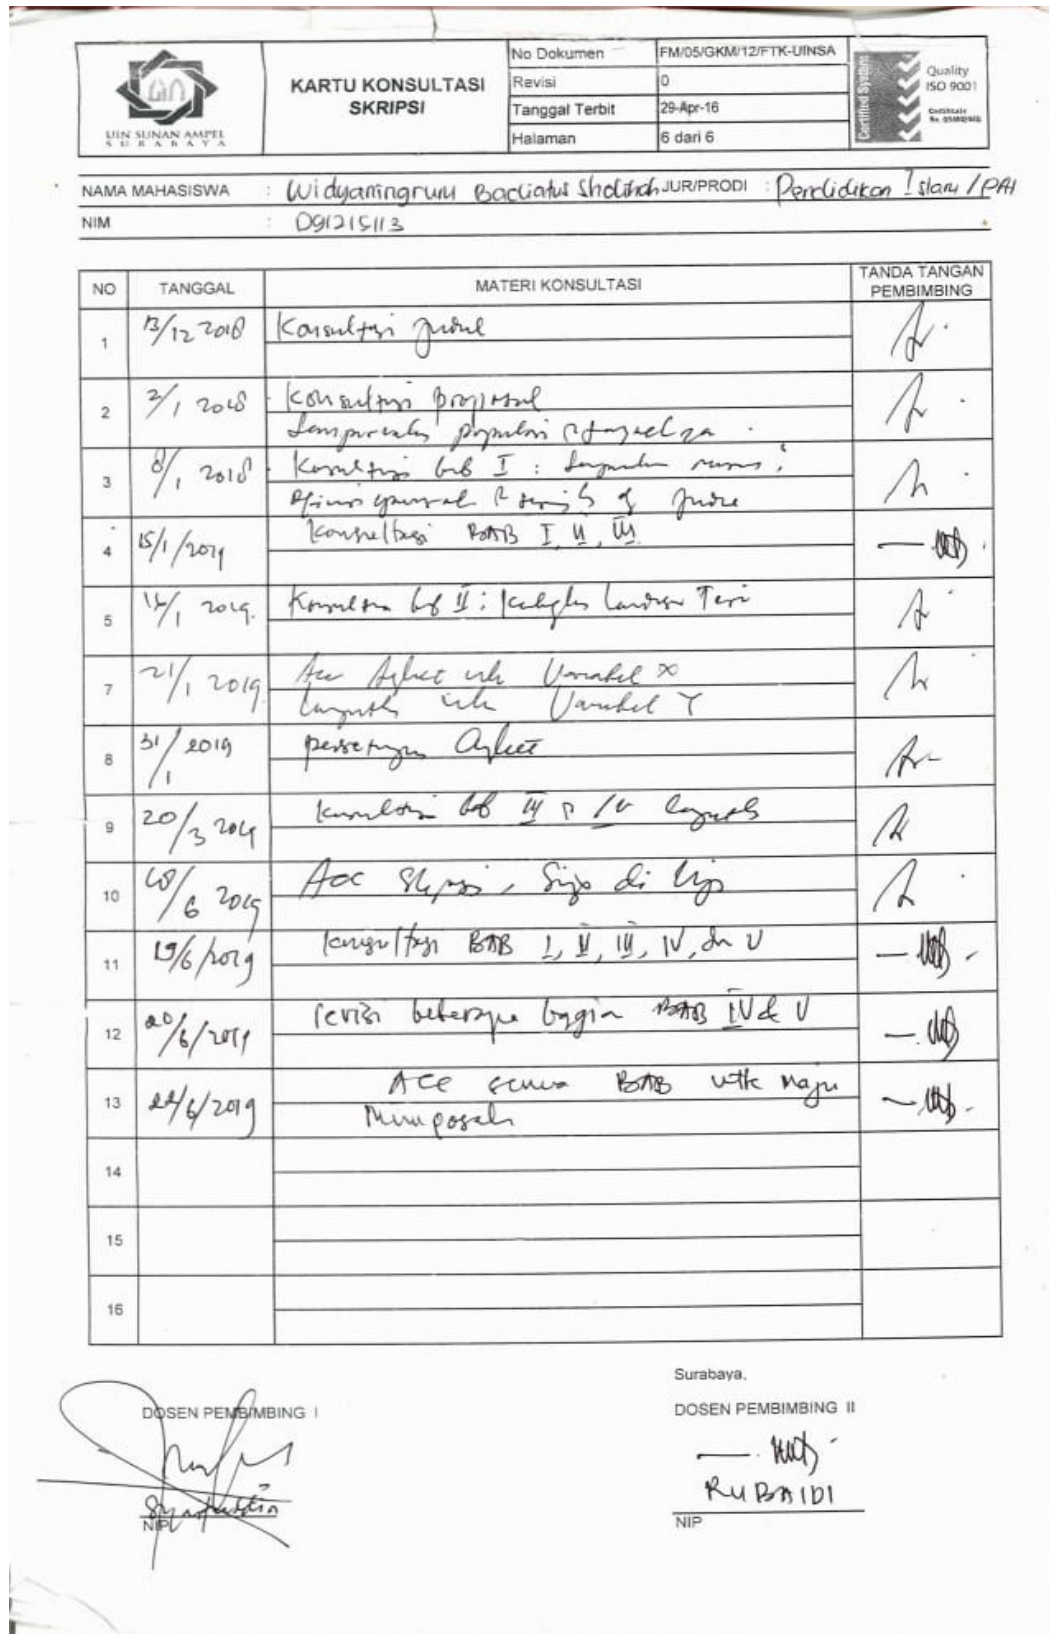 UIN SUNAN AMPEL
SURABAYA
KARTU KONSULTASI
SKRIPSI
No Dokumen FM/05/GKM/12/FTK-UINSA
Revisi 0
Tanggal Terbit 29-Apr-16
Halaman 6 dari 6
Certified System
Quality
ISO 9001
Certificate
NAMA MAHASISWA : Widyaningrum Badiatus Sholihah JUR/PRODI : Pendidikan Islam / PAI
NIM : D91215113
NO TANGGAL MATERI KONSULTASI TANDA TANGAN
PEMBIMBING
1 13/12 2018 Konsultasi judul
2 2/1 2018 Konsultasi proposal
populasi
3 8/1 2018 Konsultasi bab I :
judul
4 15/1/2019 Konsultasi BAB I, II, III
5 1 2019. bab II : Landasan Teori
7 21/1 2019 Acc Angket utk Variabel X
utk Variabel Y
8 31/1 2019 persetujuan Angket
9 20/3 2019 Konsultasi bab III IV
10 6 2019 Acc Skripsi, Siap di Uji
11 19/6/2019 Konsultasi BAB I, II, III, IV, dn V
12 20/6/2019 revisi beberapa bagian BAB IV & V
13 /6/2019 ACC semua BAB utk maju
Munaqosah
14
15
16
Surabaya,
DOSEN PEMBIMBING I DOSEN PEMBIMBING II
RUBAIDI
NIP NIP